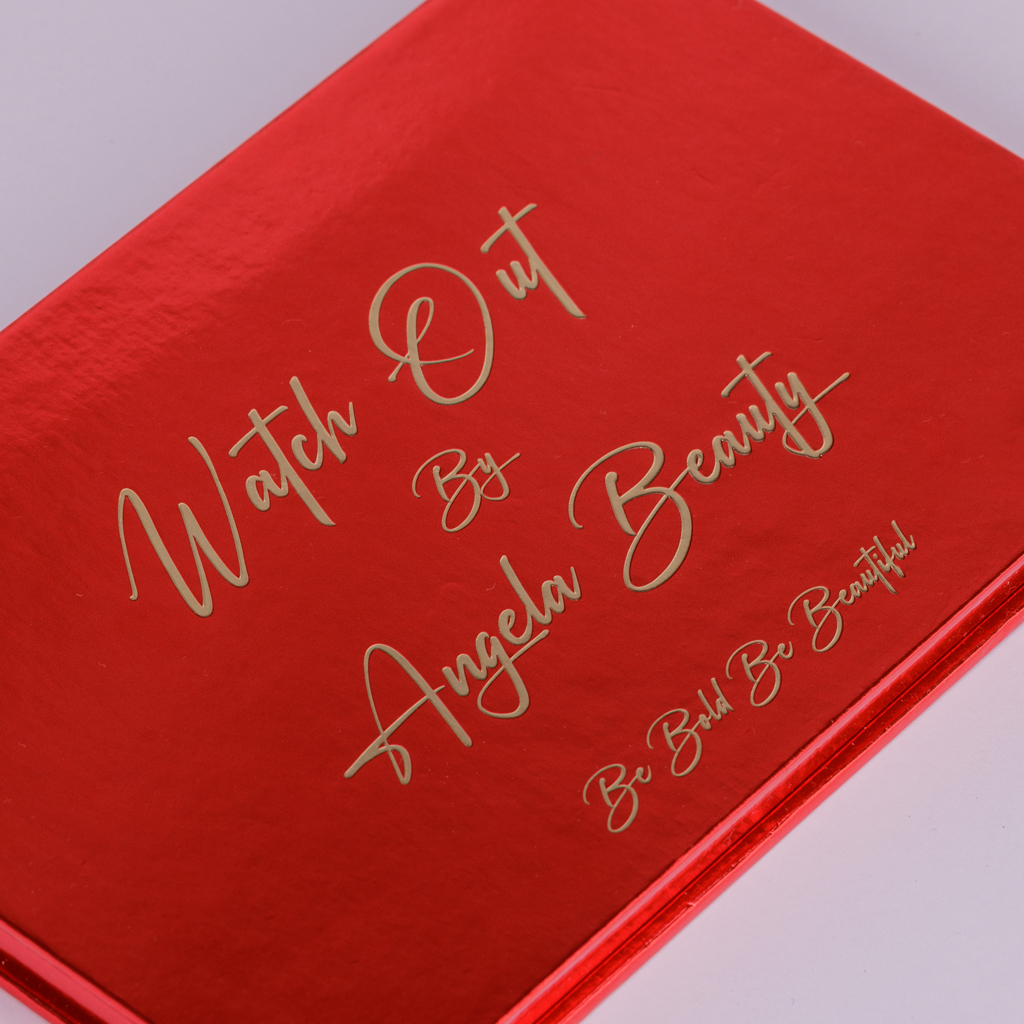 Watch Out
By
Angela Beauty
Be Bold Be Beautiful